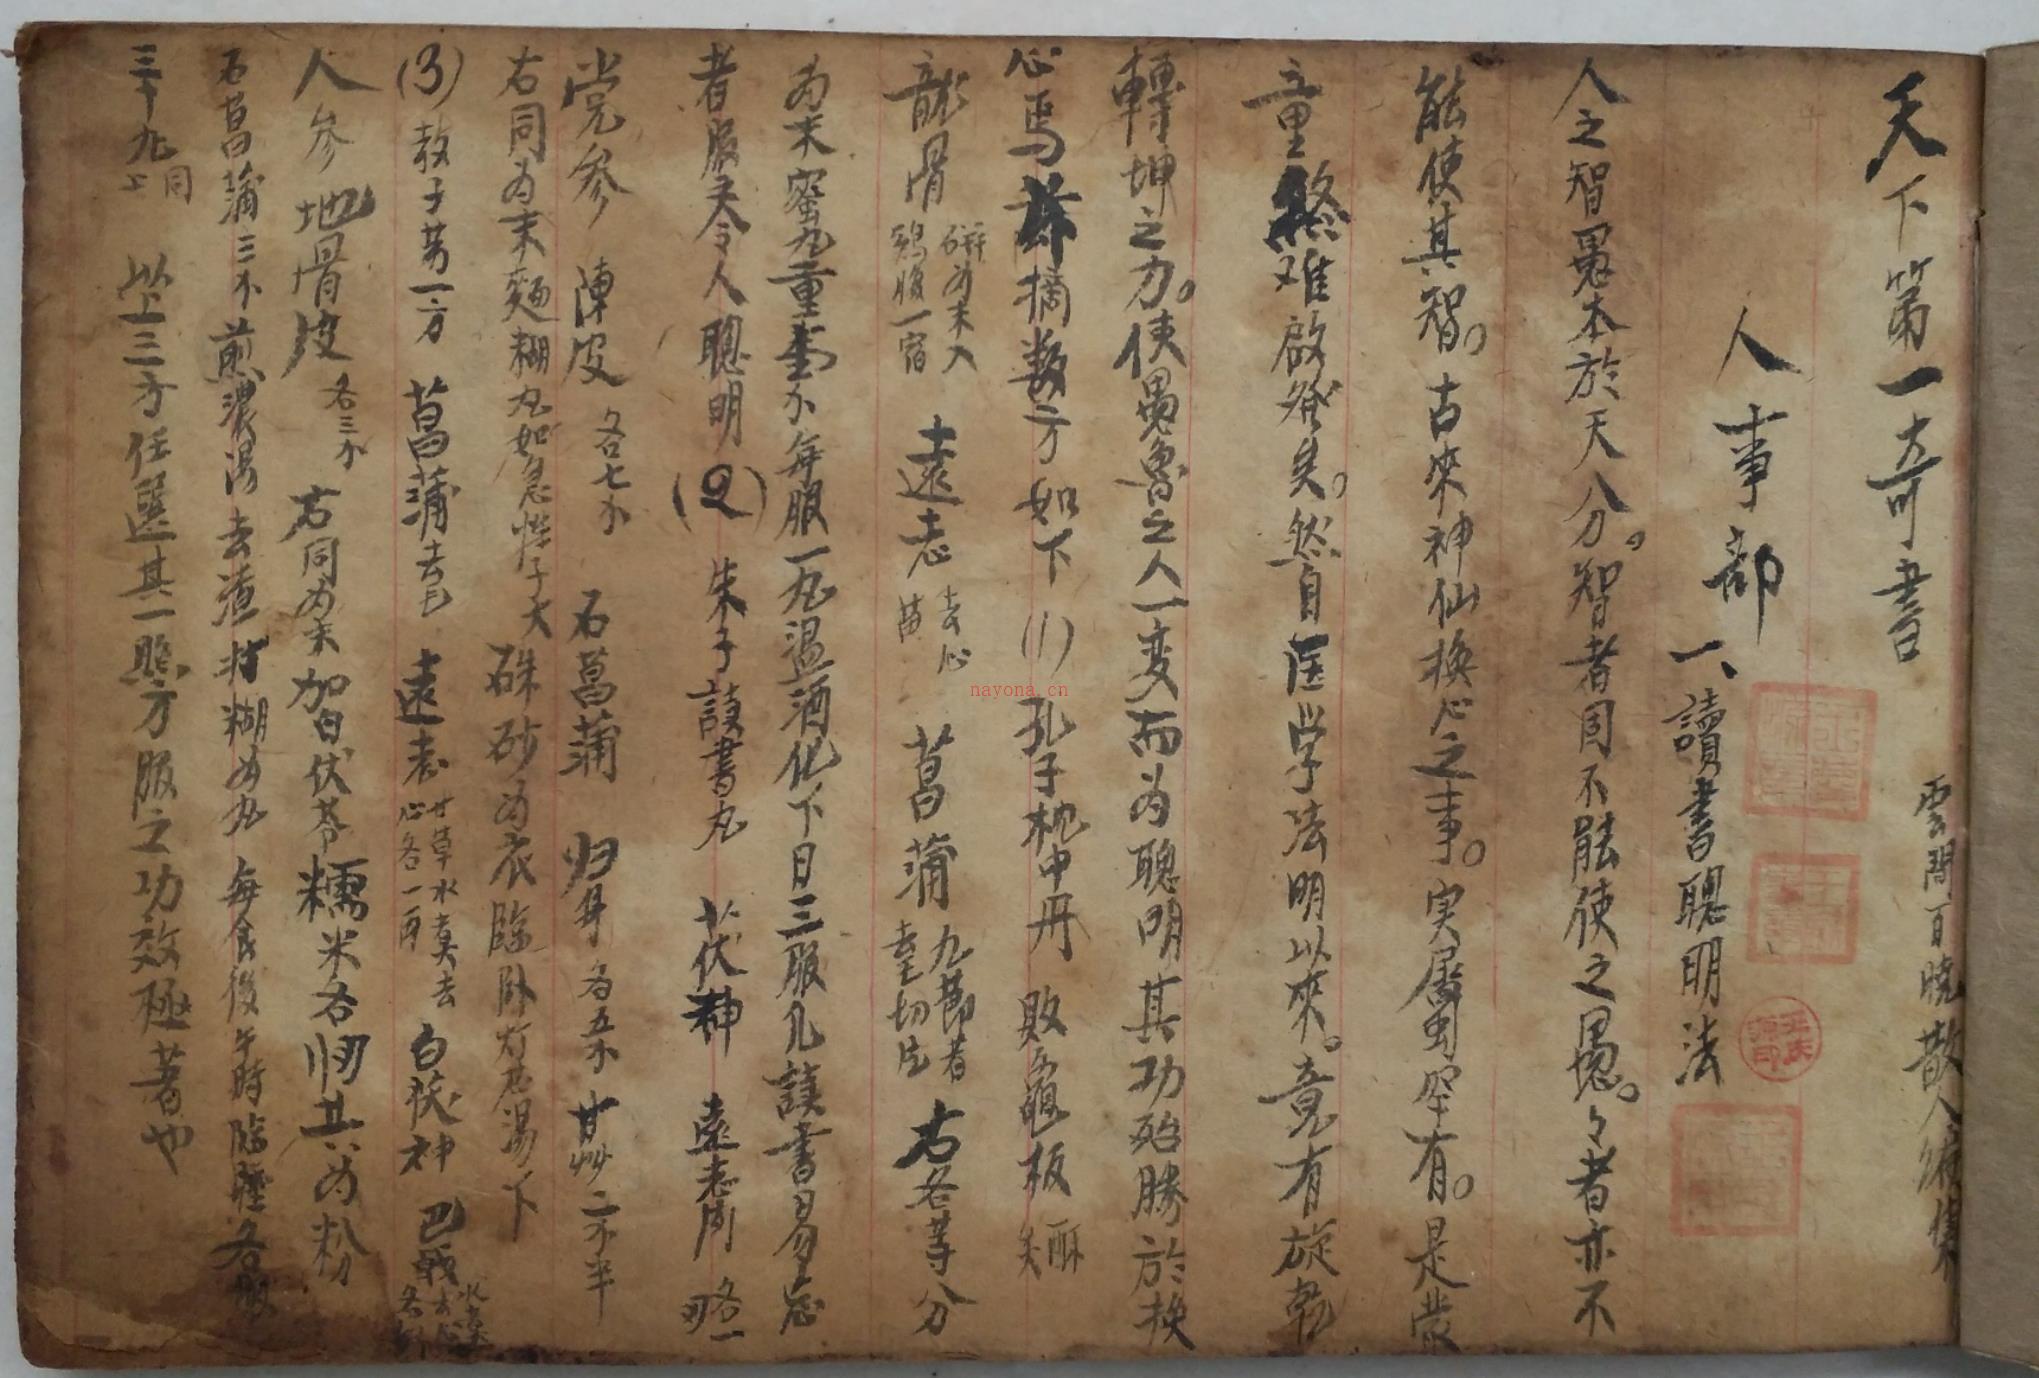 天下第一奇書
雲間百曉散人編集
人事部
一、讀書聰明法
人之智愚本於天分。智者固不能使之愚。々者亦不
能使其智。古來神仙換心之事。実屬罕有。是蒙
童終难啟發矣。然自医学法明以來。竟有旋乾
轉坤之力。使愚魯之人一变而为聰明其功殆勝於换
心焉 摘数方如下 (1) 孔子枕中丹 敗龜板 酥炙
龍骨 研为末入鷄腹一宿 遠志 去心苗 菖蒲 九節者去毛切片 右各等分
为末蜜丸重壹 每服一丸温酒化下日三服凡讀書易忘
者服之令人聰明 (2) 朱子讀書丸 茯神 遠志 各一
党参 陳皮 各七 石菖蒲 归身 各五 甘艸二 半
右同为末麵糊丸如急性子大 硃砂为衣臨卧灯芯湯下
(3) 教子第一方 菖蒲去毛 遠志 甘草水煑去心各一両 白茯神 巴戟
人参 地骨皮 各三 右同为末加白伏苓糯米各 共为粉
石菖蒲三 煎濃湯去渣 糊为丸 每食後午時臨睡各服
三十九 同上 以上三方任選其一照方服之功效極著也
nayona.cn